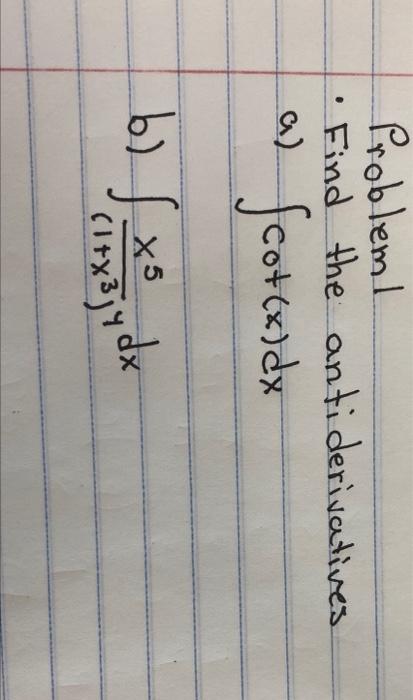 Problem 1
· Find the antiderivatives
a) ∫cot(x)dx
b) ∫ x^5/(1+x^3)^4 dx